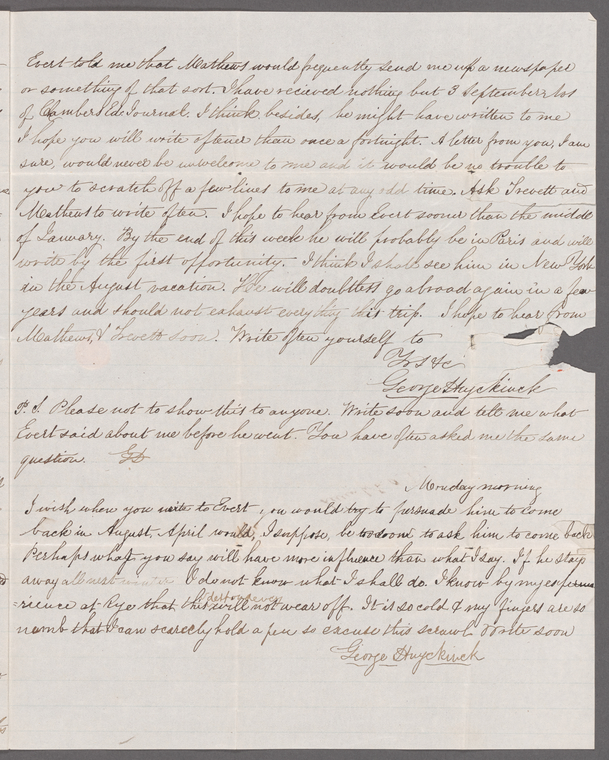 Evert told me that Mathews would frequently send me up a newspaper
or something of that sort. I have recieved nothing but 3 September nos
of Chambers Ed. Journal. I think besides, he might have written to me
I hope you will write oftener than once a fortnight. A letter from you, I am
sure, would never be unwelcome to me and it would be no trouble to
you to scratch off a few lines to me at any odd time. Ask Trevett and
Mathews to write often. I hope to hear from Evert sooner than the middle
of January. By the end of this week he will probably be in Paris and will
write by the first opportunity. I think I shall see him in New York
in the August vacation. He will doubtless go abroad again in a few
years and should not exhaust everything this trip. I hope to hear from
Mathews, & Trevett soon. Write often yourself to
Yrs &c
George Duyckinck
P. S. Please not to show this to anyone. Write soon and tell me what
Evert said about me before he went. You have often asked me the same
question. GD
Monday morning
I wish when you write to Evert, you would try to persuade him to come
back in August, April would, I suppose, be too soon to ask him to come back
Perhaps what you say will have more influence than what I say. If he stay
away all next I do not know what I shall do. I know by my experience
-rience at Rye that this will not wear off. It is so cold & my fingers are so
numb that I can scarcely hold a pen so excuse this scrawl. Write soon
George Duyckinck